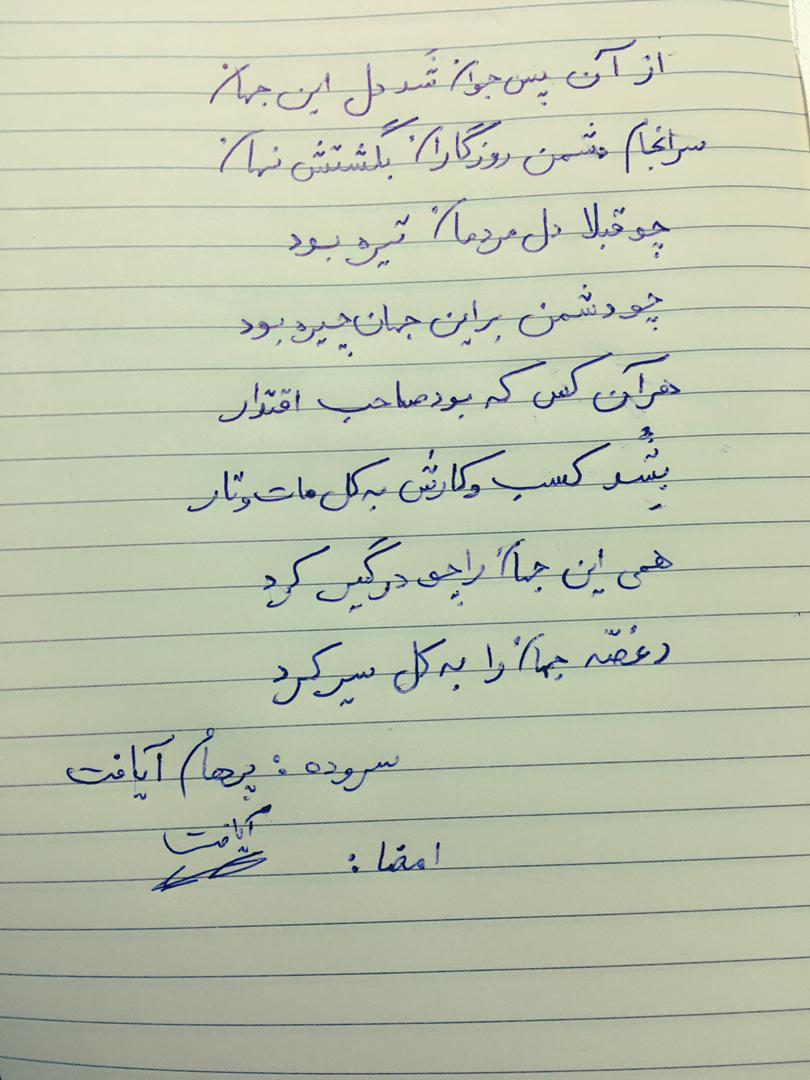 از آن پس جوان شد دل این جهان
سرانجام دشمن روزگاران بگشتش نهان
چو قبلا دل مردمان تیره بود
چو دشمن بر این جهان چیره بود
هر آن کس که بود صاحب اقتدار
بشد کسب و کارش به کل مات و تار
همی این جهان را چو درگیر کرد
ز غصّه جهان را به کل سیر کرد
سروده : پرهام آیافت
امضا : آیافت